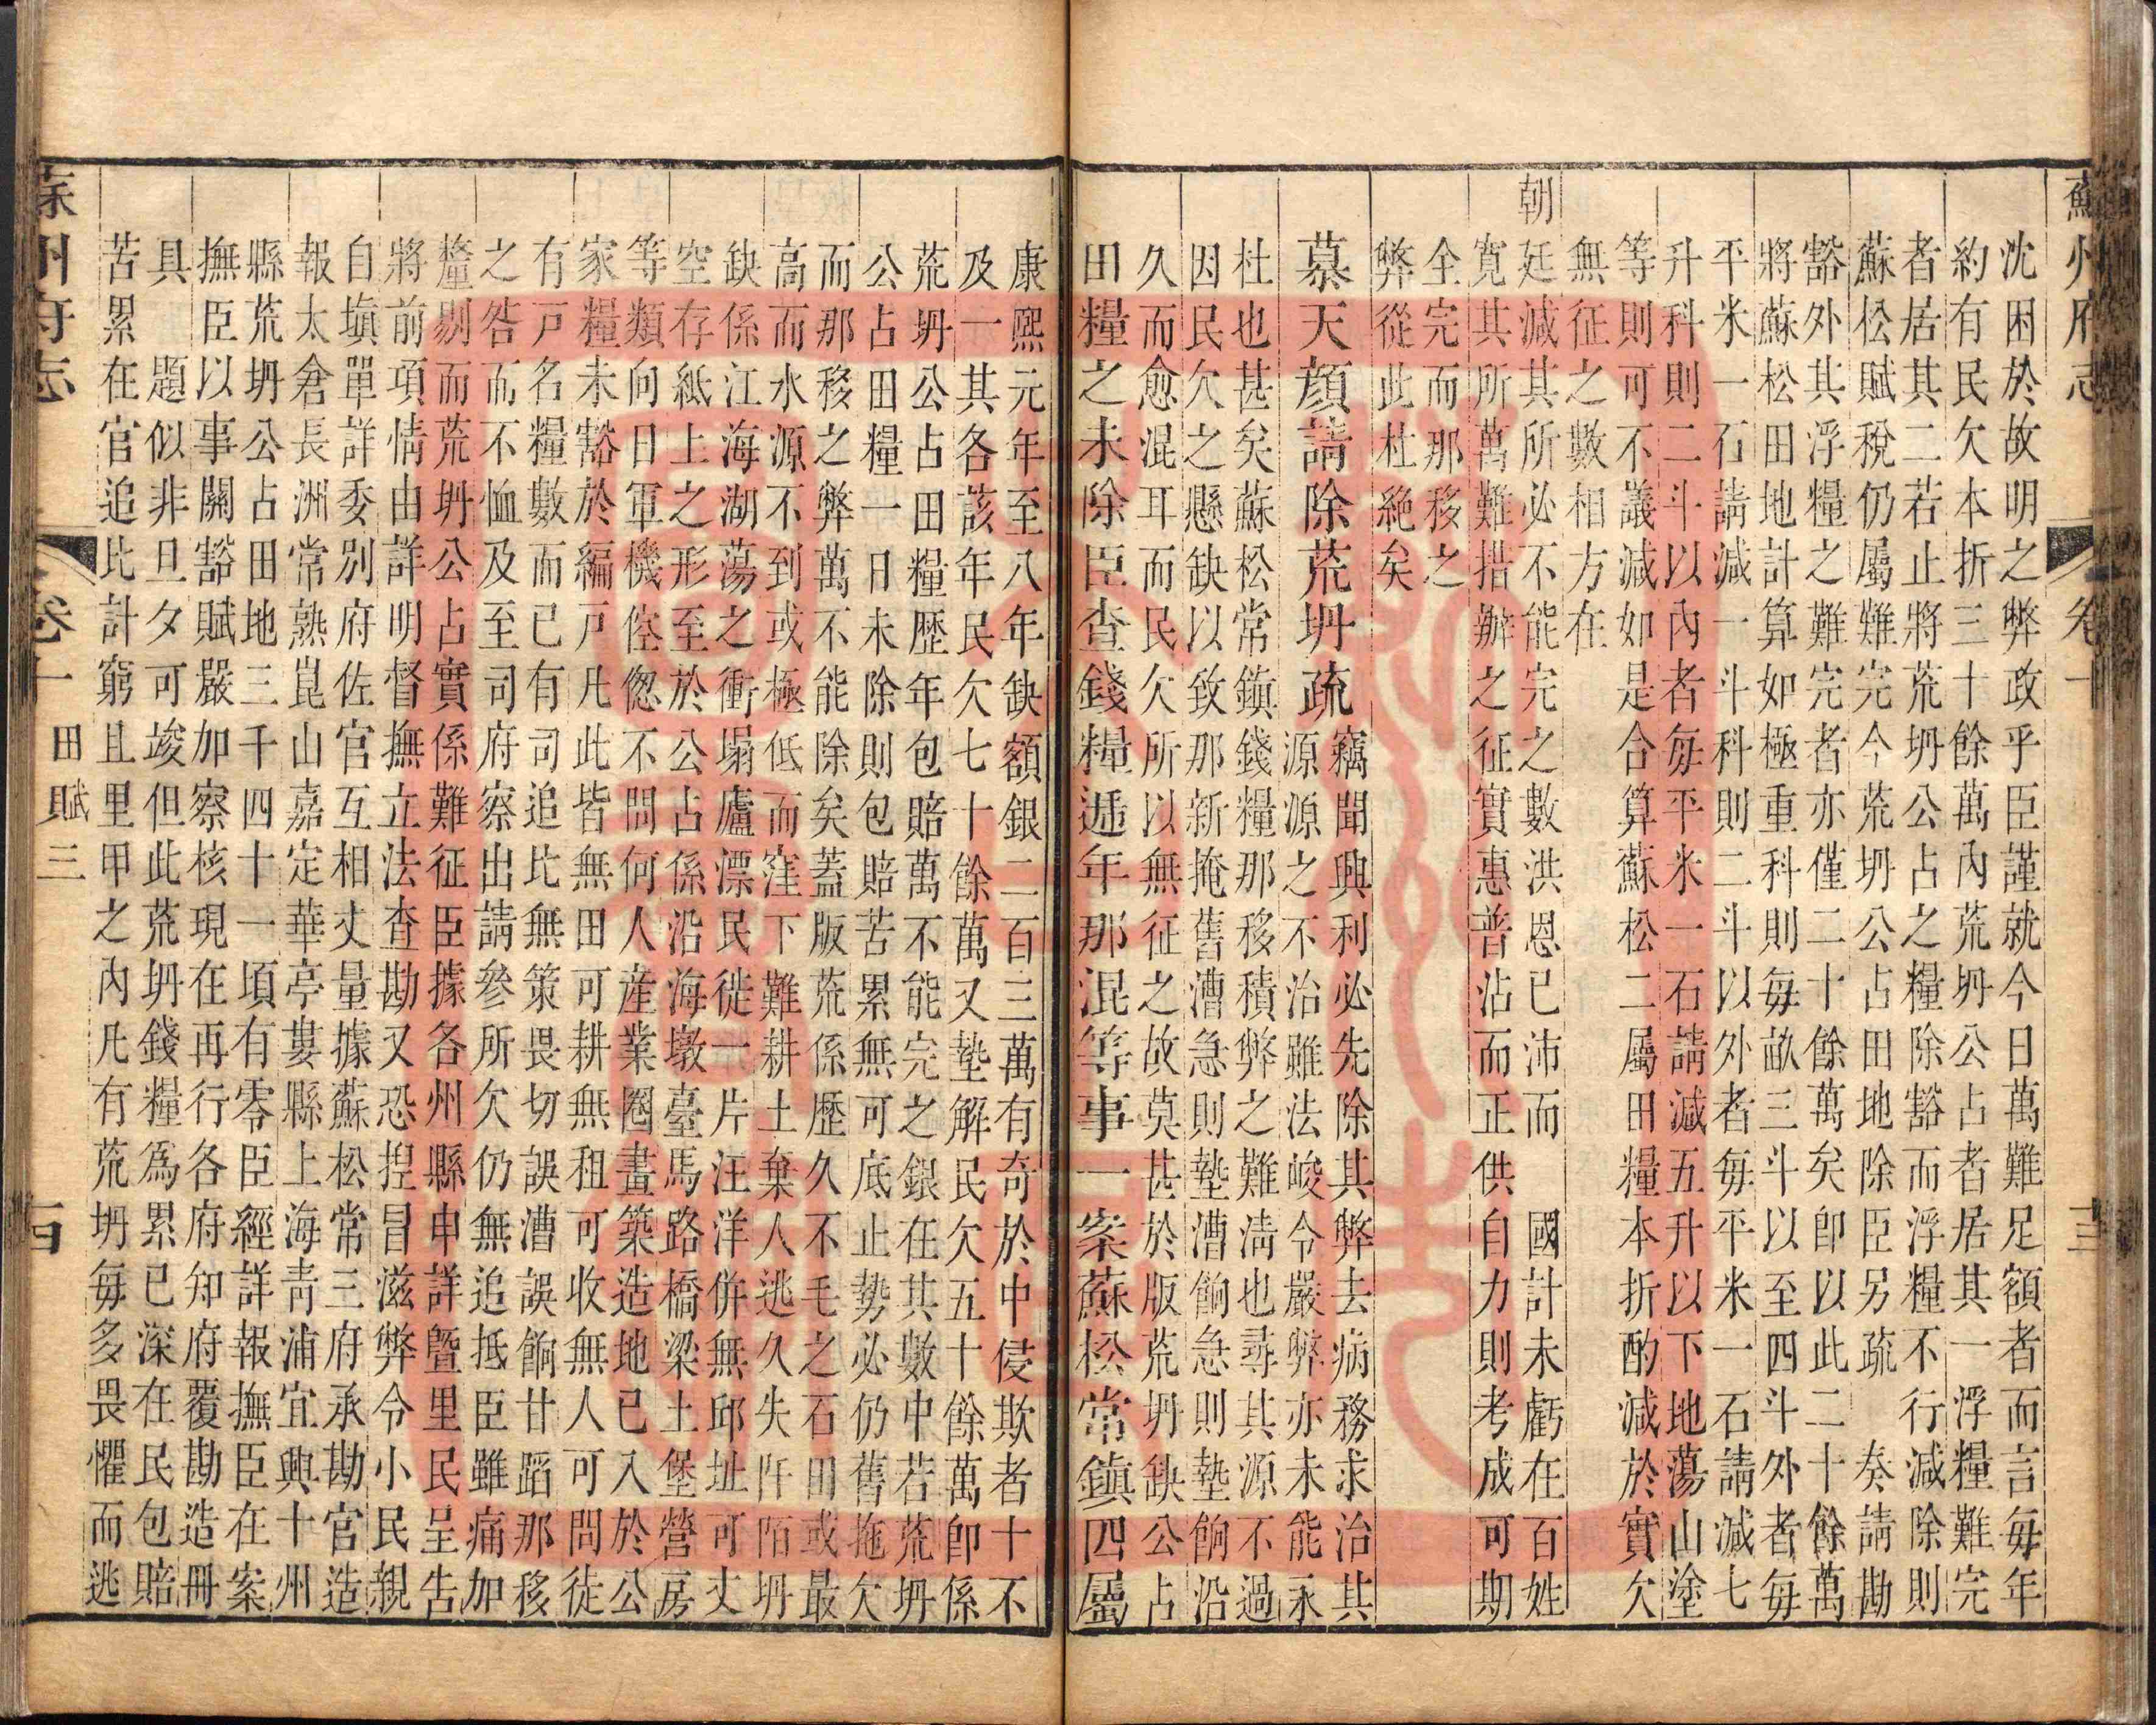 蘇州府志 卷十 十三
沈困於故明之弊政乎臣謹就今日萬難足額者而言每年
約有民欠本折三十餘萬內荒坍公占者居其一浮糧難完
者居其二若止將荒坍公占之糧除豁而浮糧不行減除則
蘇松賦稅仍屬難完今荒坍公占田地除臣另疏 奏請勘
豁外其浮糧之難完者亦僅二十餘萬矣即以此二十餘萬
將蘇松田地計算如極重科則每畝三斗以至四斗外者每
平米一石請減一斗科則二斗以外者每平米一石請減七
升科則二斗以內者每平米一石請減五升以下地蕩山塗
等則可不議減如是合算蘇松二屬田糧本折酌減於實欠
無征之數相方在
朝廷減其所必不能完之數洪恩已沛而 國計未虧在百姓
寬其所萬難措辦之征實惠普沾而正供自力則考成可期
全完而那移之
弊從此杜絕矣
慕天顏請除荒坍疏 竊聞興利必先除其弊去病務求治其
源源之不治雖法峻令嚴弊亦未能永
杜也甚矣蘇松常鎮錢糧那移積弊之難淸也尋其源不過
因民欠之懸缺以致那新掩舊漕急則墊漕餉急則墊餉沿
久而愈混耳而民欠所以無征之故莫甚於版荒坍缺公占
田糧之未除臣查錢糧遞年那混等事一案蘇松常鎮四屬
康熙元年至八年缺額銀二百三萬有奇於中侵欺者十不
及一其各該年民欠七十餘萬又墊解民欠五十餘萬卽係
荒坍公占田糧歷年包賠萬不能完之銀在其數中若荒坍
公占田糧一日未除則包賠苦累無可底止勢必仍舊拖欠
而那移之弊萬不能除矣蓋版荒係歷久不毛之石田或最
高而水源不到或極低而窪下難耕土棄人逃久失阡陌坍
缺係江海湖蕩之衝塌廬漂民徙一片汪洋倂無邱址可丈
空存紙上之形至於公占係沿海墩臺馬路橋梁土堡營房
等類向日軍機倥偬不問何人產業圈畫築造地已入於公
家糧未豁於編戸凡此皆無田可耕無租可收無人可問徒
有戸名糧數而已有司追比無策畏切誤漕誤餉甘蹈那移
之咎而不恤及至司府察出請參所欠仍無追抵臣雖痛加
釐剔而荒坍公占實係難征臣據各州縣申詳曁里民呈告
將前項情由詳明督撫立法查勘又恐揑冒滋弊令小民親
自塡單詳委別府佐官互相丈量據蘇松常三府承勘官造
報太倉長洲常熟崑山嘉定華亭婁縣上海靑浦宜興十州
縣荒坍公占田地三千四十一頃有零臣經詳報撫臣在案
撫臣以事關豁賦嚴加察核現在再行各府知府覆勘造冊
具 題似非旦夕可竣但此荒坍錢糧爲累已深在民包賠
苦累在官追比計窮且里甲之內凡有荒坍每多畏懼而逃
蘇州府志 卷十 田賦三 百